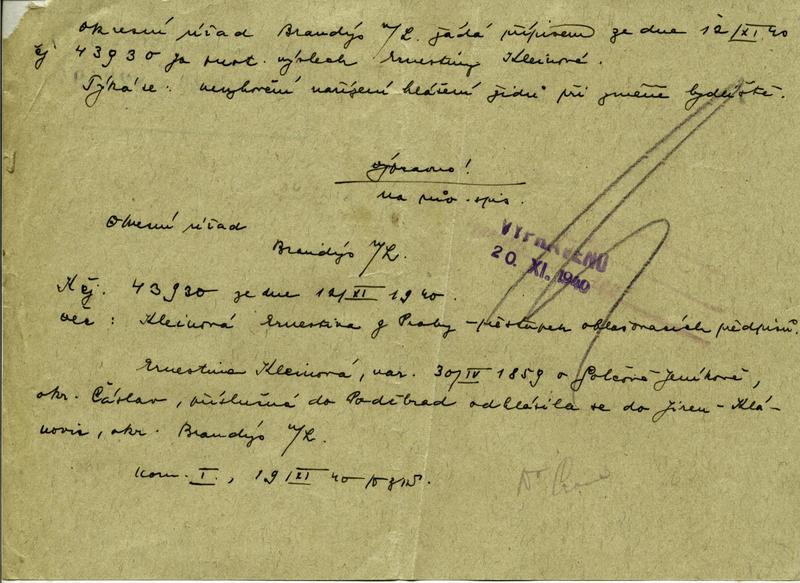 Okresní úřad Brandýs n/L. žádá přípisem ze dne 12/XI 40
čj 43930 za výslech Ernestiny Kleinové.
Týká se: nevyhovění nařízení hlášení židů při změně bydliště.
Výpravno!
na pův. spis.
Okresní úřad
Brandýs n/L.
VYPRAVENO
20. XI. 1940
K čj. 43930 ze dne 12/XI 1940.
Věc: Kleinová Ernestina z Prahy - přestupek ohlašovacích předpisů.
Ernestina Kleinová, nar. 30/IV 1859 v Golčově Jeníkově,
okr. Čáslav, příslušná do Poděbrad odhlásila se do Jiren - Klá-
novic, okr. Brandýs n/L.
kom. I., 19/XI 40
Dr